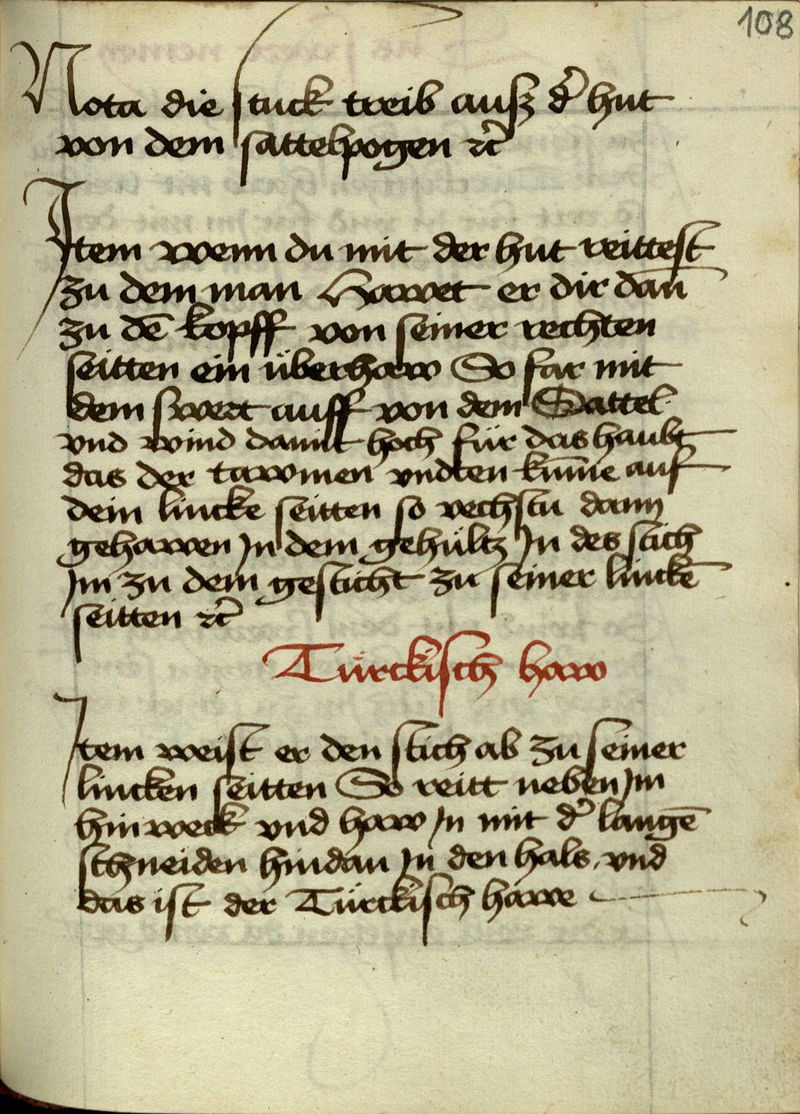 108
Nota die stuck treib ausz d̾ hut
von dem sattelpogen ꝛc̃
Item wenn du mit der hut reittest
zu dem man Hawet er dir dan̄
zu dē kopff von seiner rechten
seitten ein überhaw So far mit
dem swert auff von dem Sattel
vnd wind damit hoch für das haubt
das der dawmen vnd̾ten kum̄e auf
dein lincke seitten so vechstu dann
gehawen In dem gehültz In des stich
Im zu dem gesticht zu seiner linckē
seitten ꝛc̃
Türckisch haw
Item weist er den stich ab zu seiner
lincken seitten So reitt neben Im
hin weck vnd haw In mit d̾ langē
schneiden hindan In den hals vnd
das ist der Türckisch hawe